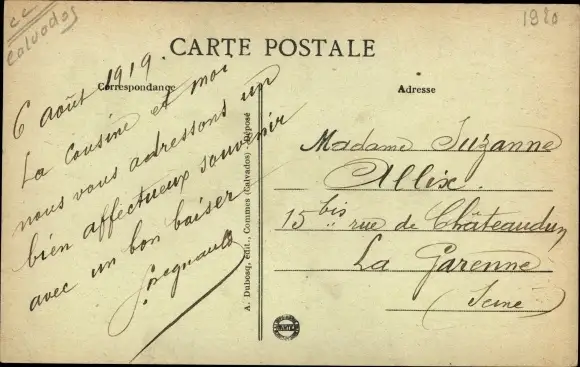 cc
Calvados
1920
CARTE POSTALE
Correspondance
Adresse
6 août 1919.
La cousine et moi
nous vous adressons un
bien affectueux souvenir
avec un bon baiser
A. Dubosq, édit., Commes (Calvados) Déposé
Madame Suzanne
Allix.
15 bis rue de Châteaudun
La Garenne
(Seine)